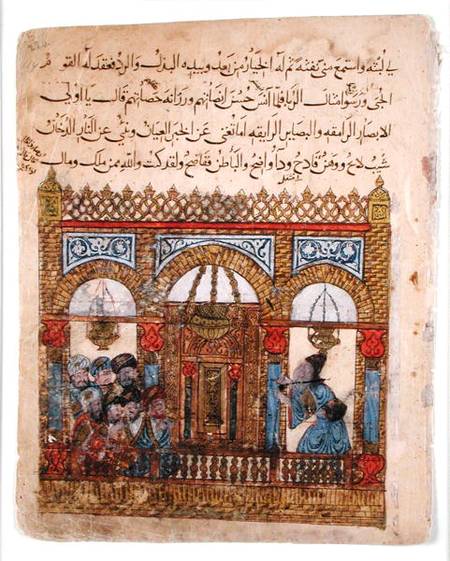 في لبثه واستمع مني نفثه ثم له الخيار من بعد وبيده البذل والرد فعقد له القوم
الحبى ورسوا امثال الربا فلما آنس حسن انصاتهم ورزانة حصاتهم قال يا اولي
الابصار الرامقه والبصاير الرايقه اما تغني عن الخبر العيان وتنبي عن النار الدخان
شيب لائح ووهن فادح وداء واضح والباطن ففاضح ولقد كنت والله ممن ملك ومال